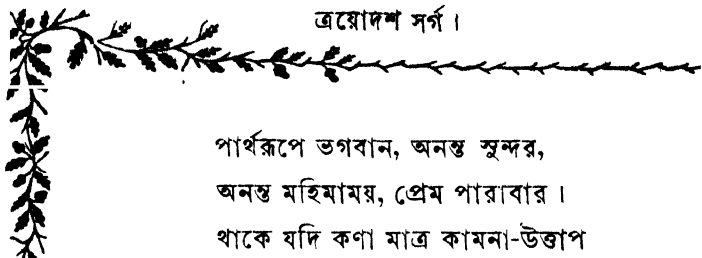 ত্রয়োদশ সর্গ।
পার্থরূপে ভগবান, অনন্ত সুন্দর,
অনন্ত মহিমাময়, প্রেম পারাবার।
থাকে যদি কণা মাত্র কামনা-উত্তাপ